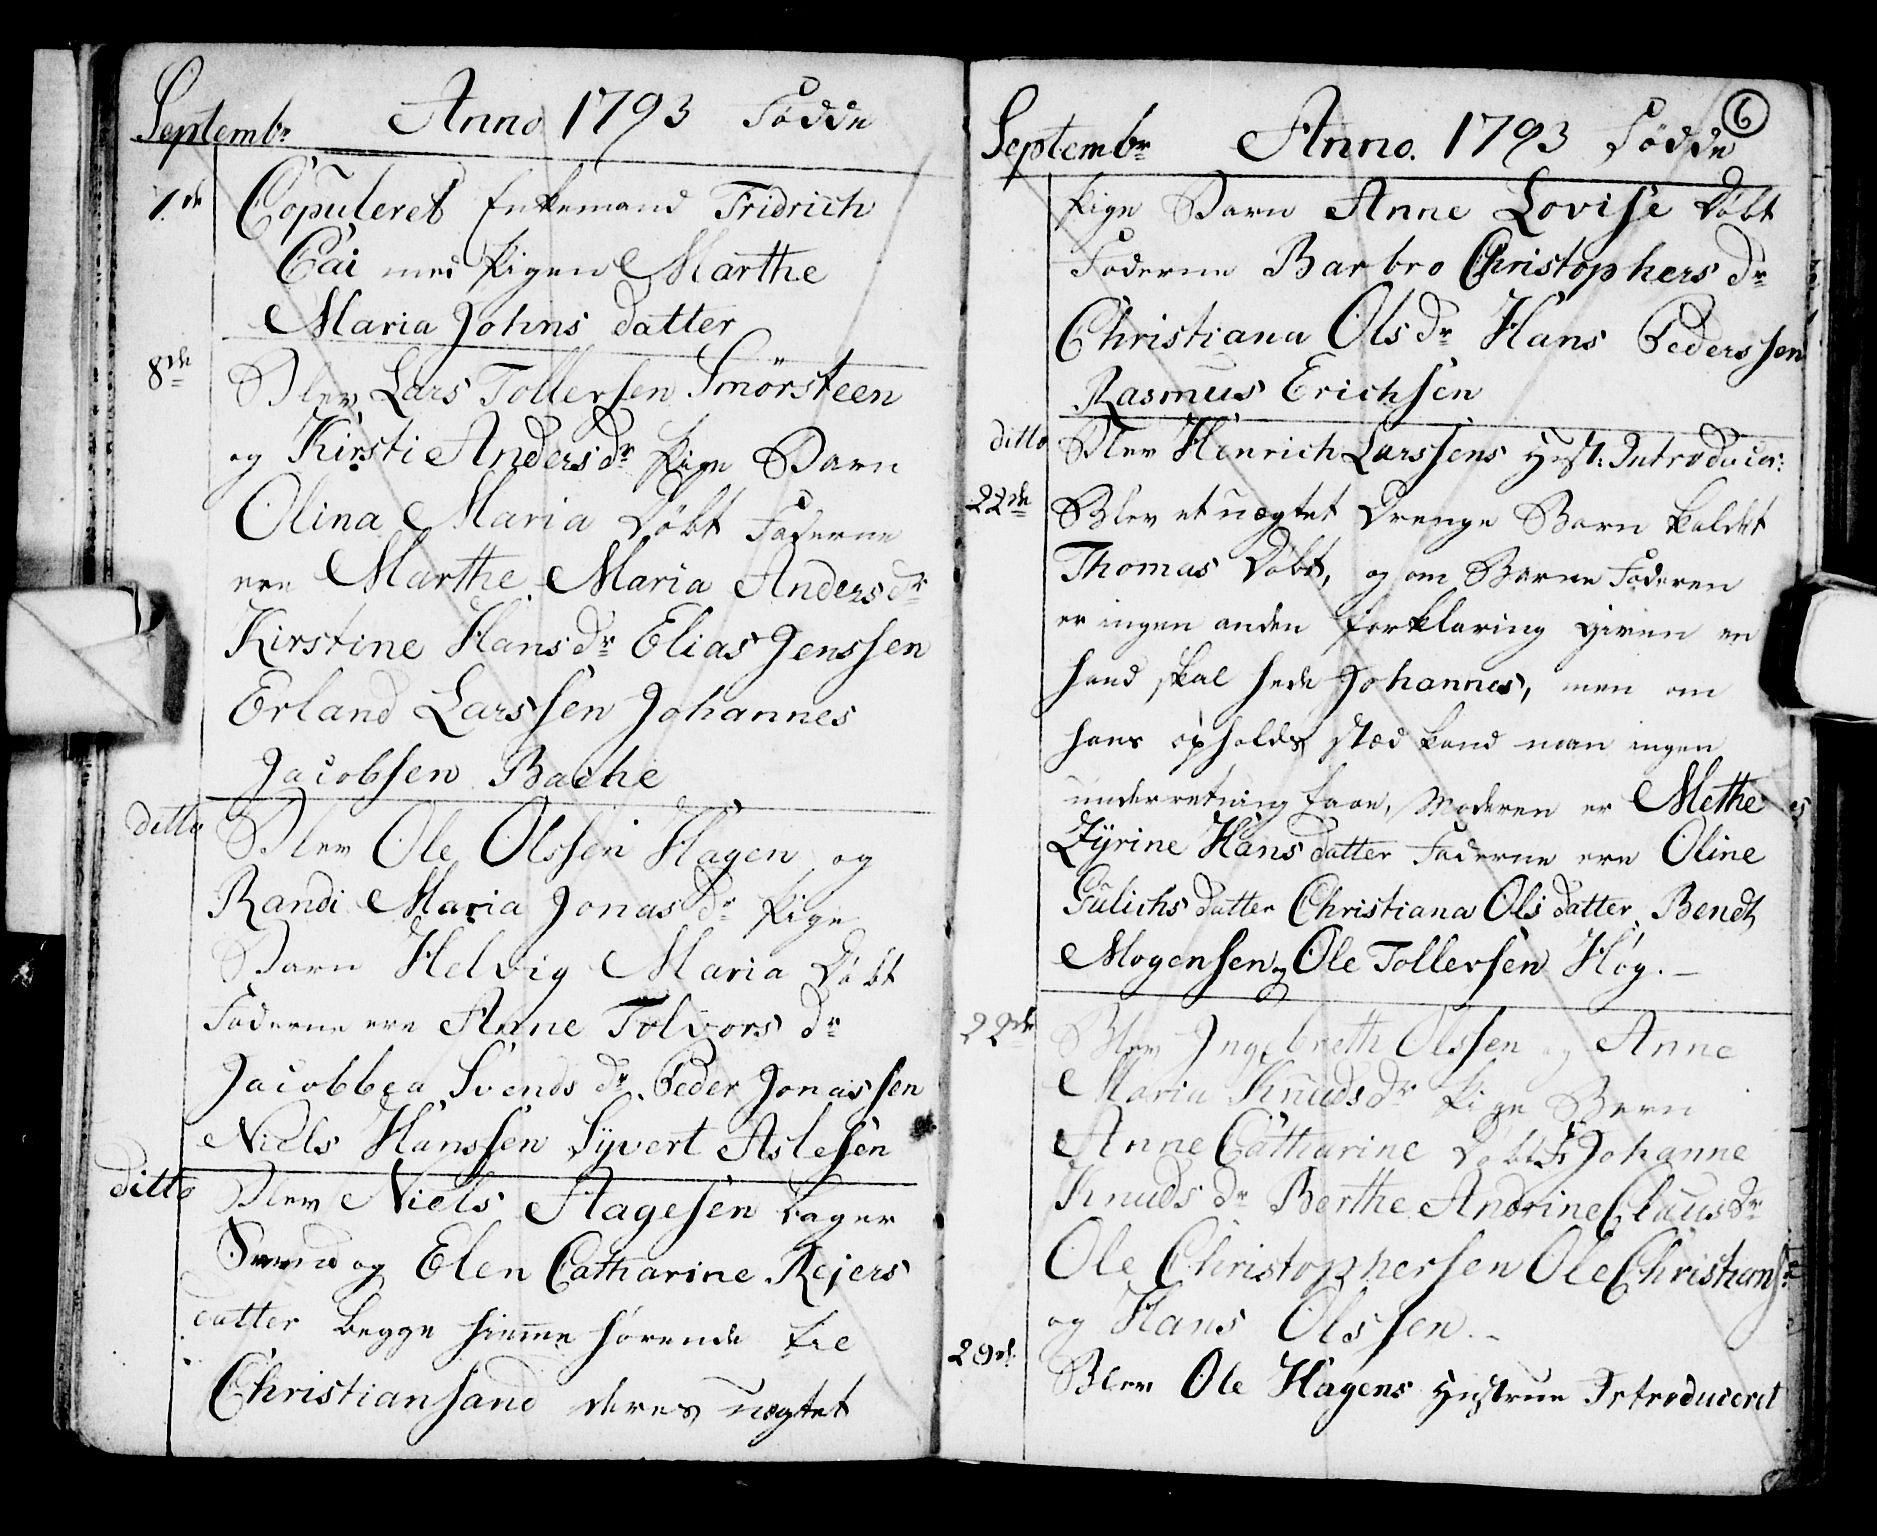 Septembr Anno 1793 Födde
7de Copuleret Enkemand Fridrich
Cai med Pigen Marthe
Maria Johns datter
8de Blev Lars Tollersen Smörsteen
og Kirsti Andersdr Pige Barn
Olina Maria Döbt Faderne
ere Marthe Maria Andersdr
Kirstine Hansdr Elias Jenssen
Erland Larssen Johannes
Jacobsen Bache
ditto Blev Ole Olssen Hagen og
Randi Maria Jonasdr Pige
Barn Helvig Maria Döbt
Faderne ere Anne Tolvors dr
Jacobbea Svends dr Peder Jonassen
Niels Hanssen Syvert Aslesen
ditto Blev Niels Aagesen Bager
Svend og Elen Catharine Rejers
datter begge hiemme hörende til
Christiansand deres uægtet
6
Septembr Anno. 1793 Födde
Pige Barn Anne Lovise Döbt
Faderne Barbro Christophers dr
Christiana Olsdr Hans Pederssen
Rasmus Erichsen
ditto Blev Henrich Larssens Hust: Introducer:
22de Blev et uægtet Drenge Barn kaldet
Thomas Döbt, og om Barne Faderen
er ingen anden forklaring given en
hand skal hede Johannes, men om
hans opholds stæd kand man ingen
underretning faae, Moderen er Methe
Zyrine Hans datter Faderne ere Oline
Gulichs datter Christiana Ols datter Bendt
Mogensen og Ole Tollersen Høg. -
22de Blev Ingebreth Olssen og Anne
Maria Knudsdr Pige Barn
Anne Catharine Döbt F: Johanne
Knuds dr Berthe Andrine Clausdr
Ole Christophersen Ole Christians:
og Hans Olssen. -
29de Blev Ole Hagens Hustrue Introduceret